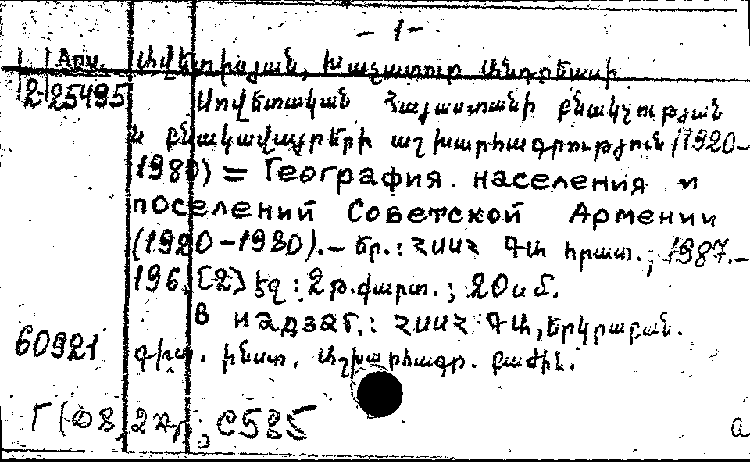 - 1 -
Арм. Ավետիսյան, Խաչատուր Անդրեասի
2-25495 Սովետական Հայաստանի բնակչության
և բնակավայրերի աշխարհագրություն (1920-
1980) = География населения и
поселений Советской Армении
(1920-1980).- Եր.: ՀՍՍՀ ԳԱ հրատ., 1987.-
196, [2] էջ : 2 թ. քարտ. ; 20 սմ.
В надзаг.: ՀՍՍՀ ԳԱ, Երկրաբան.
60921 գիտ. ինստ. Աշխարհագր. բաժին.
Г(08, С585
а